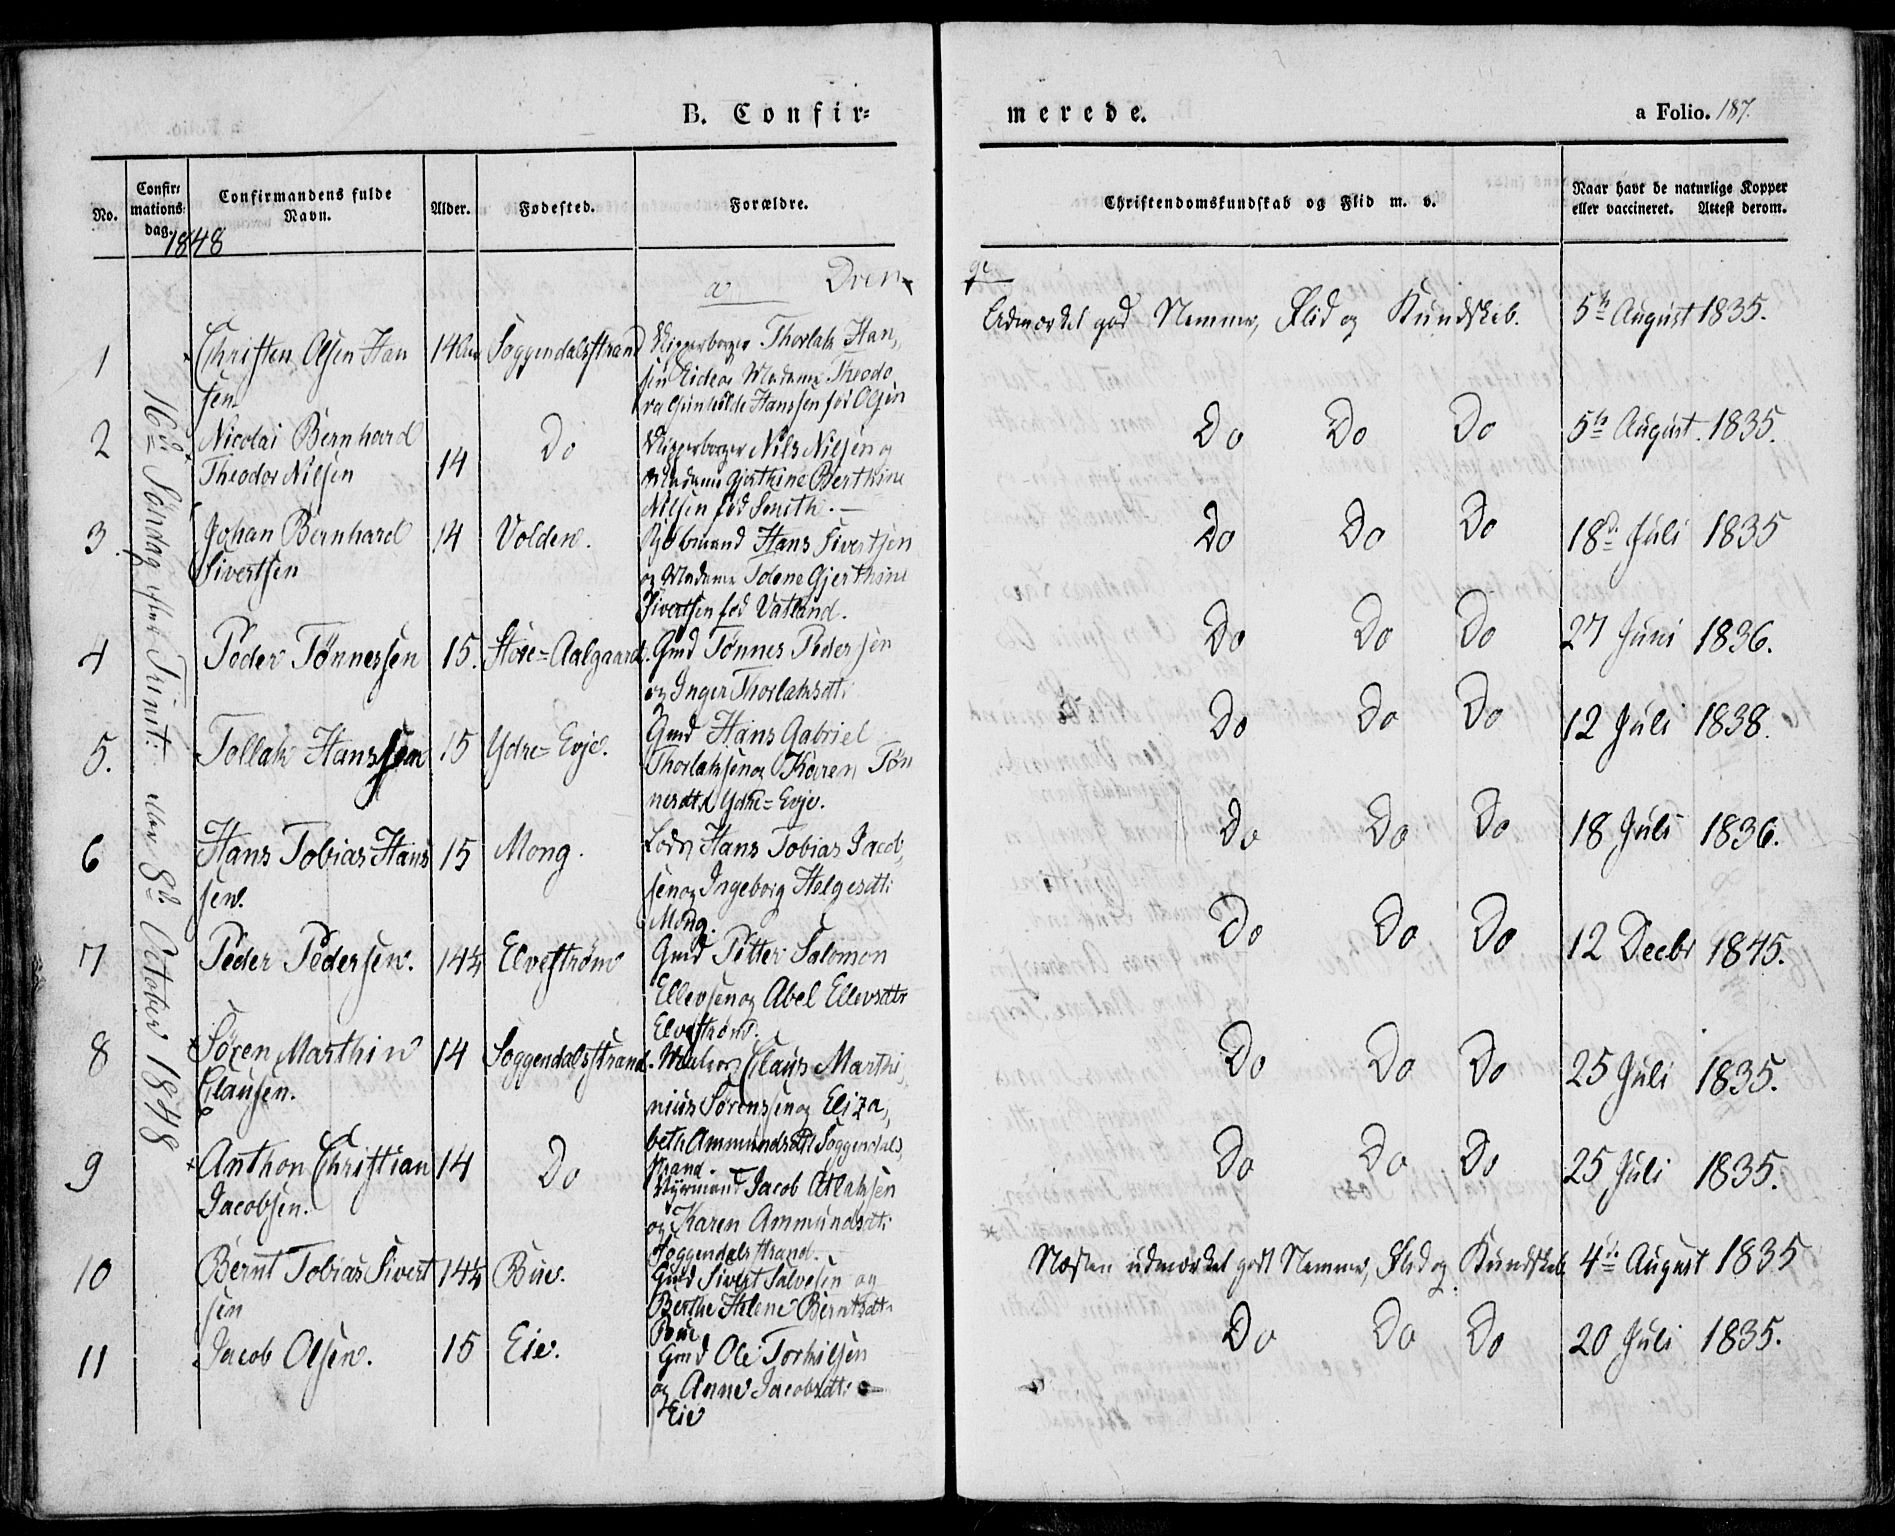 B. Confir=
merede.
a Folio. 187.
No.
Confir=
mations=
dag.
Confirmandens fulde
Navn.
Alder.
Fødested.
Forældre.
Christendomskundskab og Flid m. v.
Naar havt de naturlige Kopper
eller vaccineret. Attest derom.
1848
a Dren=
ge
16de Söndag efter Trinit: 8de October 1848
1 Christen Olsen Han
sen
14 Soggendalsstrand
Skipperborger Thorlak Han,
sen Eide og Madame Theodo
ra Gunhilde Hanssen fød Olsen
Udmærket god Nemme, Flid og Kundskab.
5te August 1835.
2 Nicolai Bernhard
Theodor Nilsen
14 Do
Skipperborger Nils Nilsen og
Madame Gjerthine Berthine
Nilsen fød Smith. —
Do Do Do 5te August. 1835.
3. Johan Bernhard
Sivertsen
14 Volden.
Kjøbmand Hans Sivertsen
og Madame Tolene Gjerthine
Sivertsen fød Vatland.
Do Do Do 18de Juli 1835
4 Peder Tønnessen 15. Store=Aalgaard.
Gmd Tønnes Pedersen
og Inger Thorlaksdtr
Do Do Do 27 Juni 1836.
5. Tollak Hanssen 15 Ydre=Evje.
Gmd Hans Gabriel
Thorlaksen og Karen Tøn
nesdtr Ydre=Evje.
Do Do Do 12 Juli 1838.
6 Hans Tobias Hans
sen.
15 Mong.
Lods Hans Tobias Jacob,
sen og Ingeborg Helgesdtr:
Mong.
Do Do Do 18 Juli 1836.
7 Peder Pedersen. 14½ Elvestrøm
Gmd Petter Salomon
Ellevsen og Abel Ellevsdtr
Elvestrøm.
Do Do Do 12 Decbr 1845.
8 Søren Marthin
Clausen.
14 Soggendalsstrand.
Claus Marthi,
nius Sørenssen og Eliza,
beth Ammundsdtr Soggendals,
strand.
Do Do Do 25 Juli 1835.
9 Anthon Christian
Jacobsen.
14 Do
Styrmand Jacob Atlaksen
og Karen Ammundsdtr:
Soggendalsstrand.
Do Do Do 25 Juli 1835.
10 Bernt Tobias Sivert
sen
14½ Bue.
Gmd Sivert Salvesen og
Berthe Helene Berntsdtr
Bue
Næsten udmærket godt Nemme, Flid og Kundskab
4de August 1835
11 Jacob Olsen. 15 Eie.
Gmd Ole Torkilsen
og Anne Jacobsdtr:
Eie
Do Do Do 20 Juli 1835.